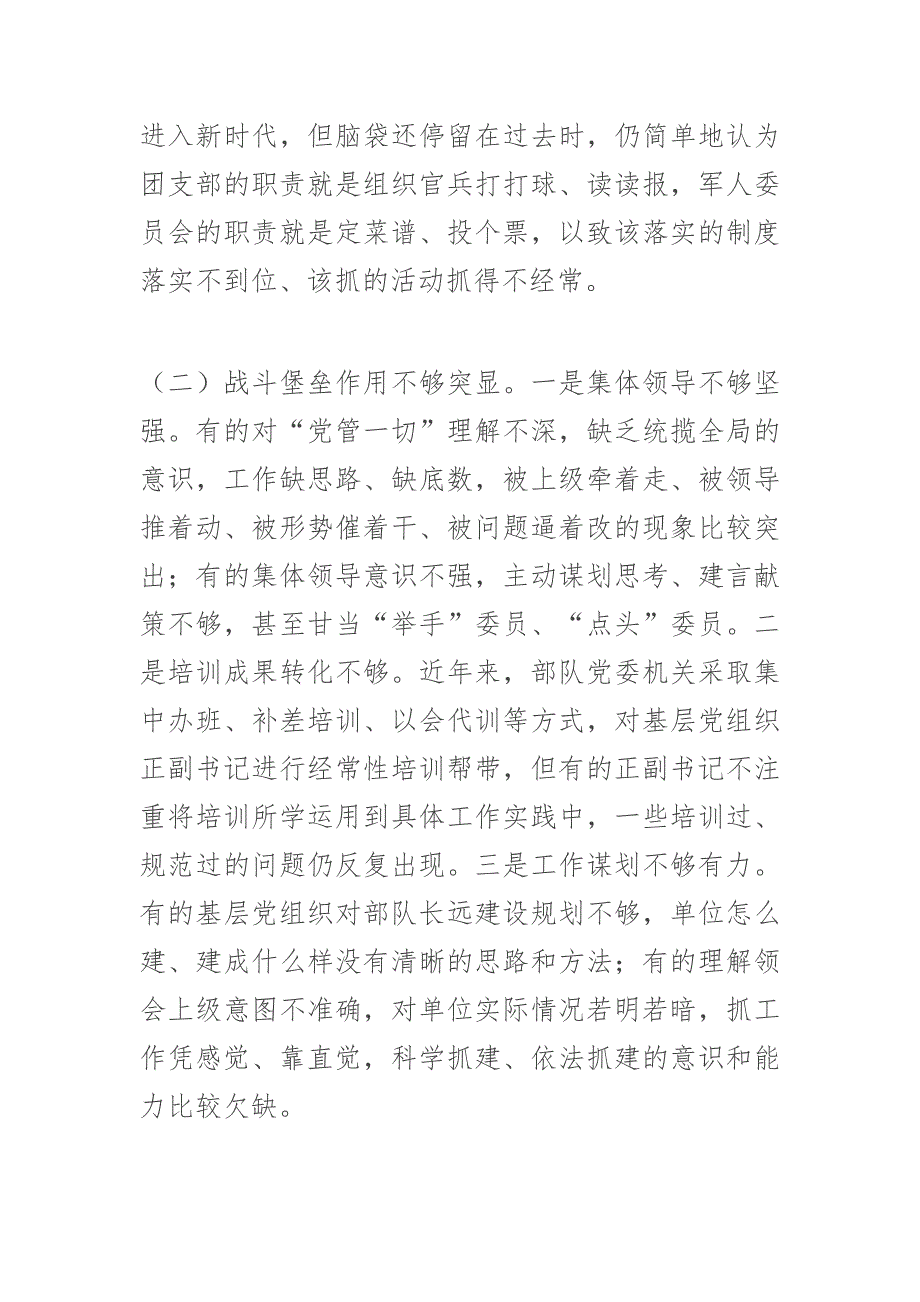 进入新时代，但脑袋还停留在过去时，仍简单地认为
团支部的职责就是组织官兵打打球、读读报，军人委
员会的职责就是定菜谱、投个票，以致该落实的制度
落实不到位、该抓的活动抓得不经常。
（二）战斗堡垒作用不够突显。一是集体领导不够坚
强。有的对“党管一切”理解不深，缺乏统揽全局的
意识，工作缺思路、缺底数，被上级牵着走、被领导
推着动、被形势催着干、被问题逼着改的现象比较突
出；有的集体领导意识不强，主动谋划思考、建言献
策不够，甚至甘当“举手”委员、“点头”委员。二
是培训成果转化不够。近年来，部队党委机关采取集
中办班、补差培训、以会代训等方式，对基层党组织
正副书记进行经常性培训帮带，但有的正副书记不注
重将培训所学运用到具体工作实践中，一些培训过、
规范过的问题仍反复出现。三是工作谋划不够有力。
有的基层党组织对部队长远建设规划不够，单位怎么
建、建成什么样没有清晰的思路和方法；有的理解领
会上级意图不准确，对单位实际情况若明若暗，抓工
作凭感觉、靠直觉，科学抓建、依法抓建的意识和能
力比较欠缺。